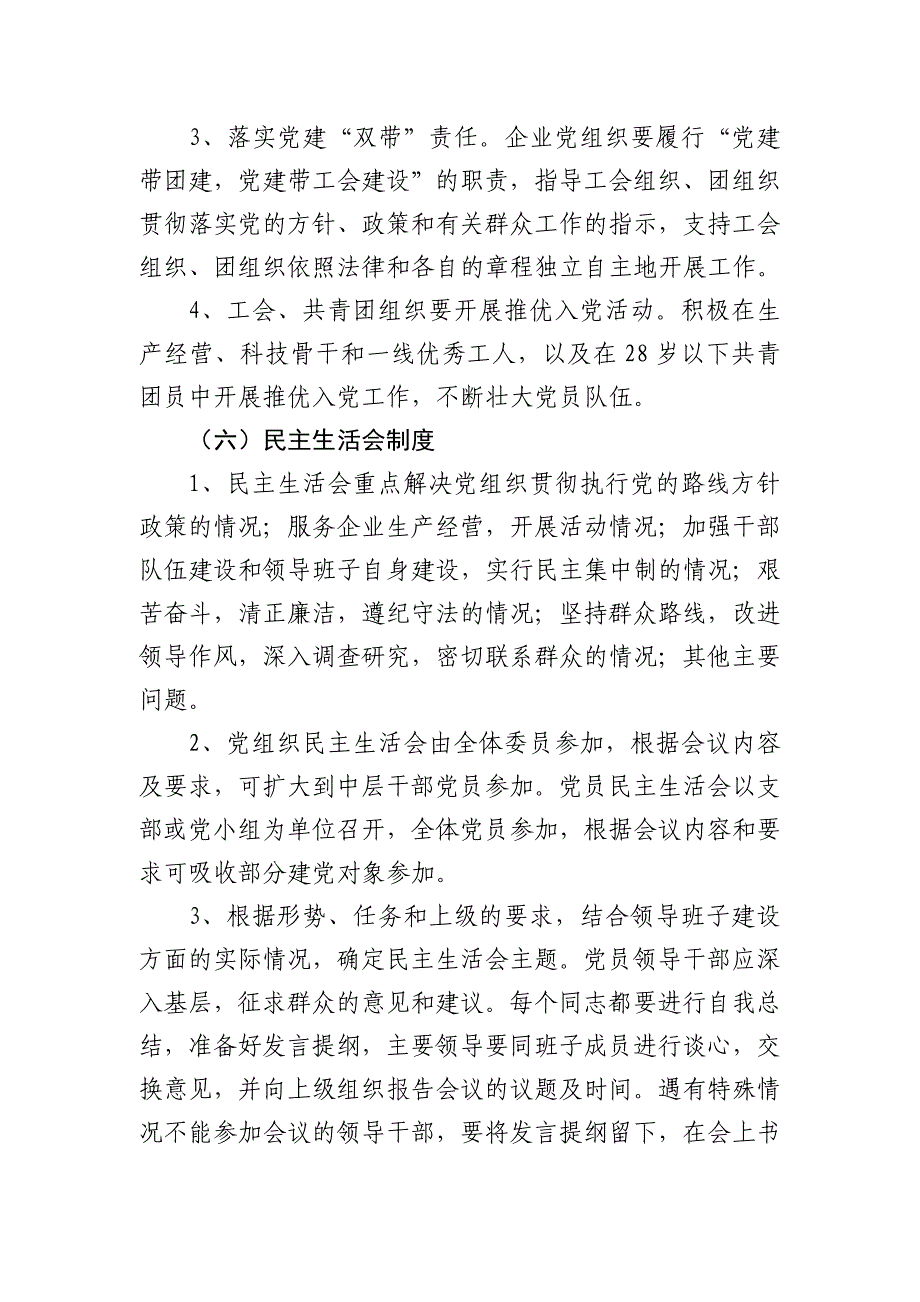 3、落实党建“双带”责任。企业党组织要履行“党建
带团建，党建带工会建设”的职责，指导工会组织、团组织
贯彻落实党的方针、政策和有关群众工作的指示，支持工会
组织、团组织依照法律和各自的章程独立自主地开展工作。
4、工会、共青团组织要开展推优入党活动。积极在生
产经营、科技骨干和一线优秀工人，以及在 28 岁以下共青
团员中开展推优入党工作，不断壮大党员队伍。
（六）民主生活会制度
1、民主生活会重点解决党组织贯彻执行党的路线方针
政策的情况；服务企业生产经营，开展活动情况；加强干部
队伍建设和领导班子自身建设，实行民主集中制的情况；艰
苦奋斗，清正廉洁，遵纪守法的情况；坚持群众路线，改进
领导作风，深入调查研究，密切联系群众的情况；其他主要
问题。
2、党组织民主生活会由全体委员参加，根据会议内容
及要求，可扩大到中层干部党员参加。党员民主生活会以支
部或党小组为单位召开，全体党员参加，根据会议内容和要
求可吸收部分建党对象参加。
3、根据形势、任务和上级的要求，结合领导班子建设
方面的实际情况，确定民主生活会主题。党员领导干部应深
入基层，征求群众的意见和建议。每个同志都要进行自我总
结，准备好发言提纲，主要领导要同班子成员进行谈心，交
换意见，并向上级组织报告会议的议题及时间。遇有特殊情
况不能参加会议的领导干部，要将发言提纲留下，在会上书